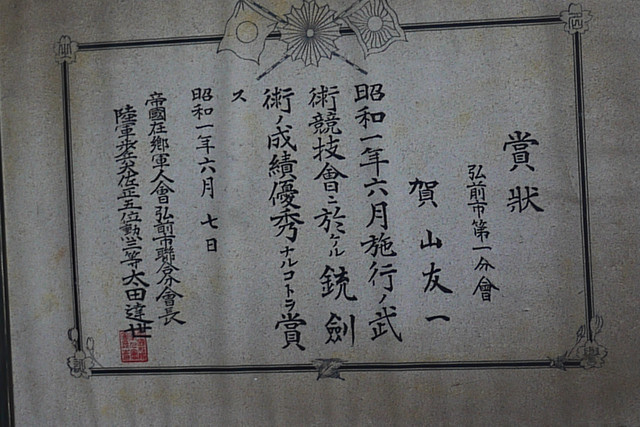 賞狀
弘前市第一分會
賀山友一
昭和一年六月施行ノ武
術競技會ニ於ケル銃劍
術ノ成績優秀ナルコトヲ賞
ス
昭和一年六月七日
帝國在郷軍人會弘前市聯合分會長
陸軍歩兵大佐正五位勲三等太田達世